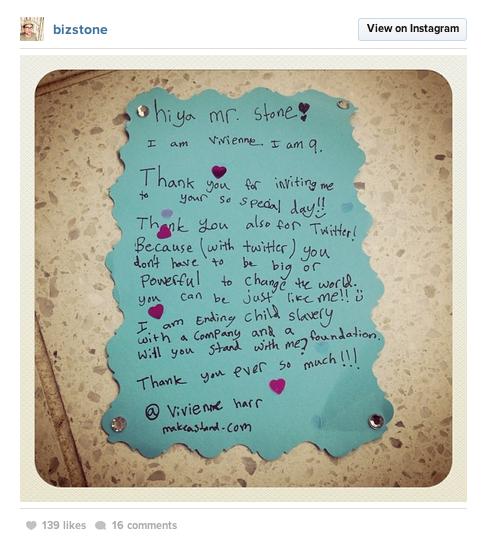 bizstone
View on Instagram
hiya mr. stone!
I am Vivienne. I am 9.
Thank you for inviting me
to your so special day!!
Thank you also for Twitter!
Because (with twitter) you
don't have to be big or
powerful to change the world.
you can be just like me!! :)
I am Ending child slavery
with a company and a foundation.
Will you stand with me?
Thank you ever so much!!!
@ Vivienne harr
makeastand.com
139 likes 16 comments